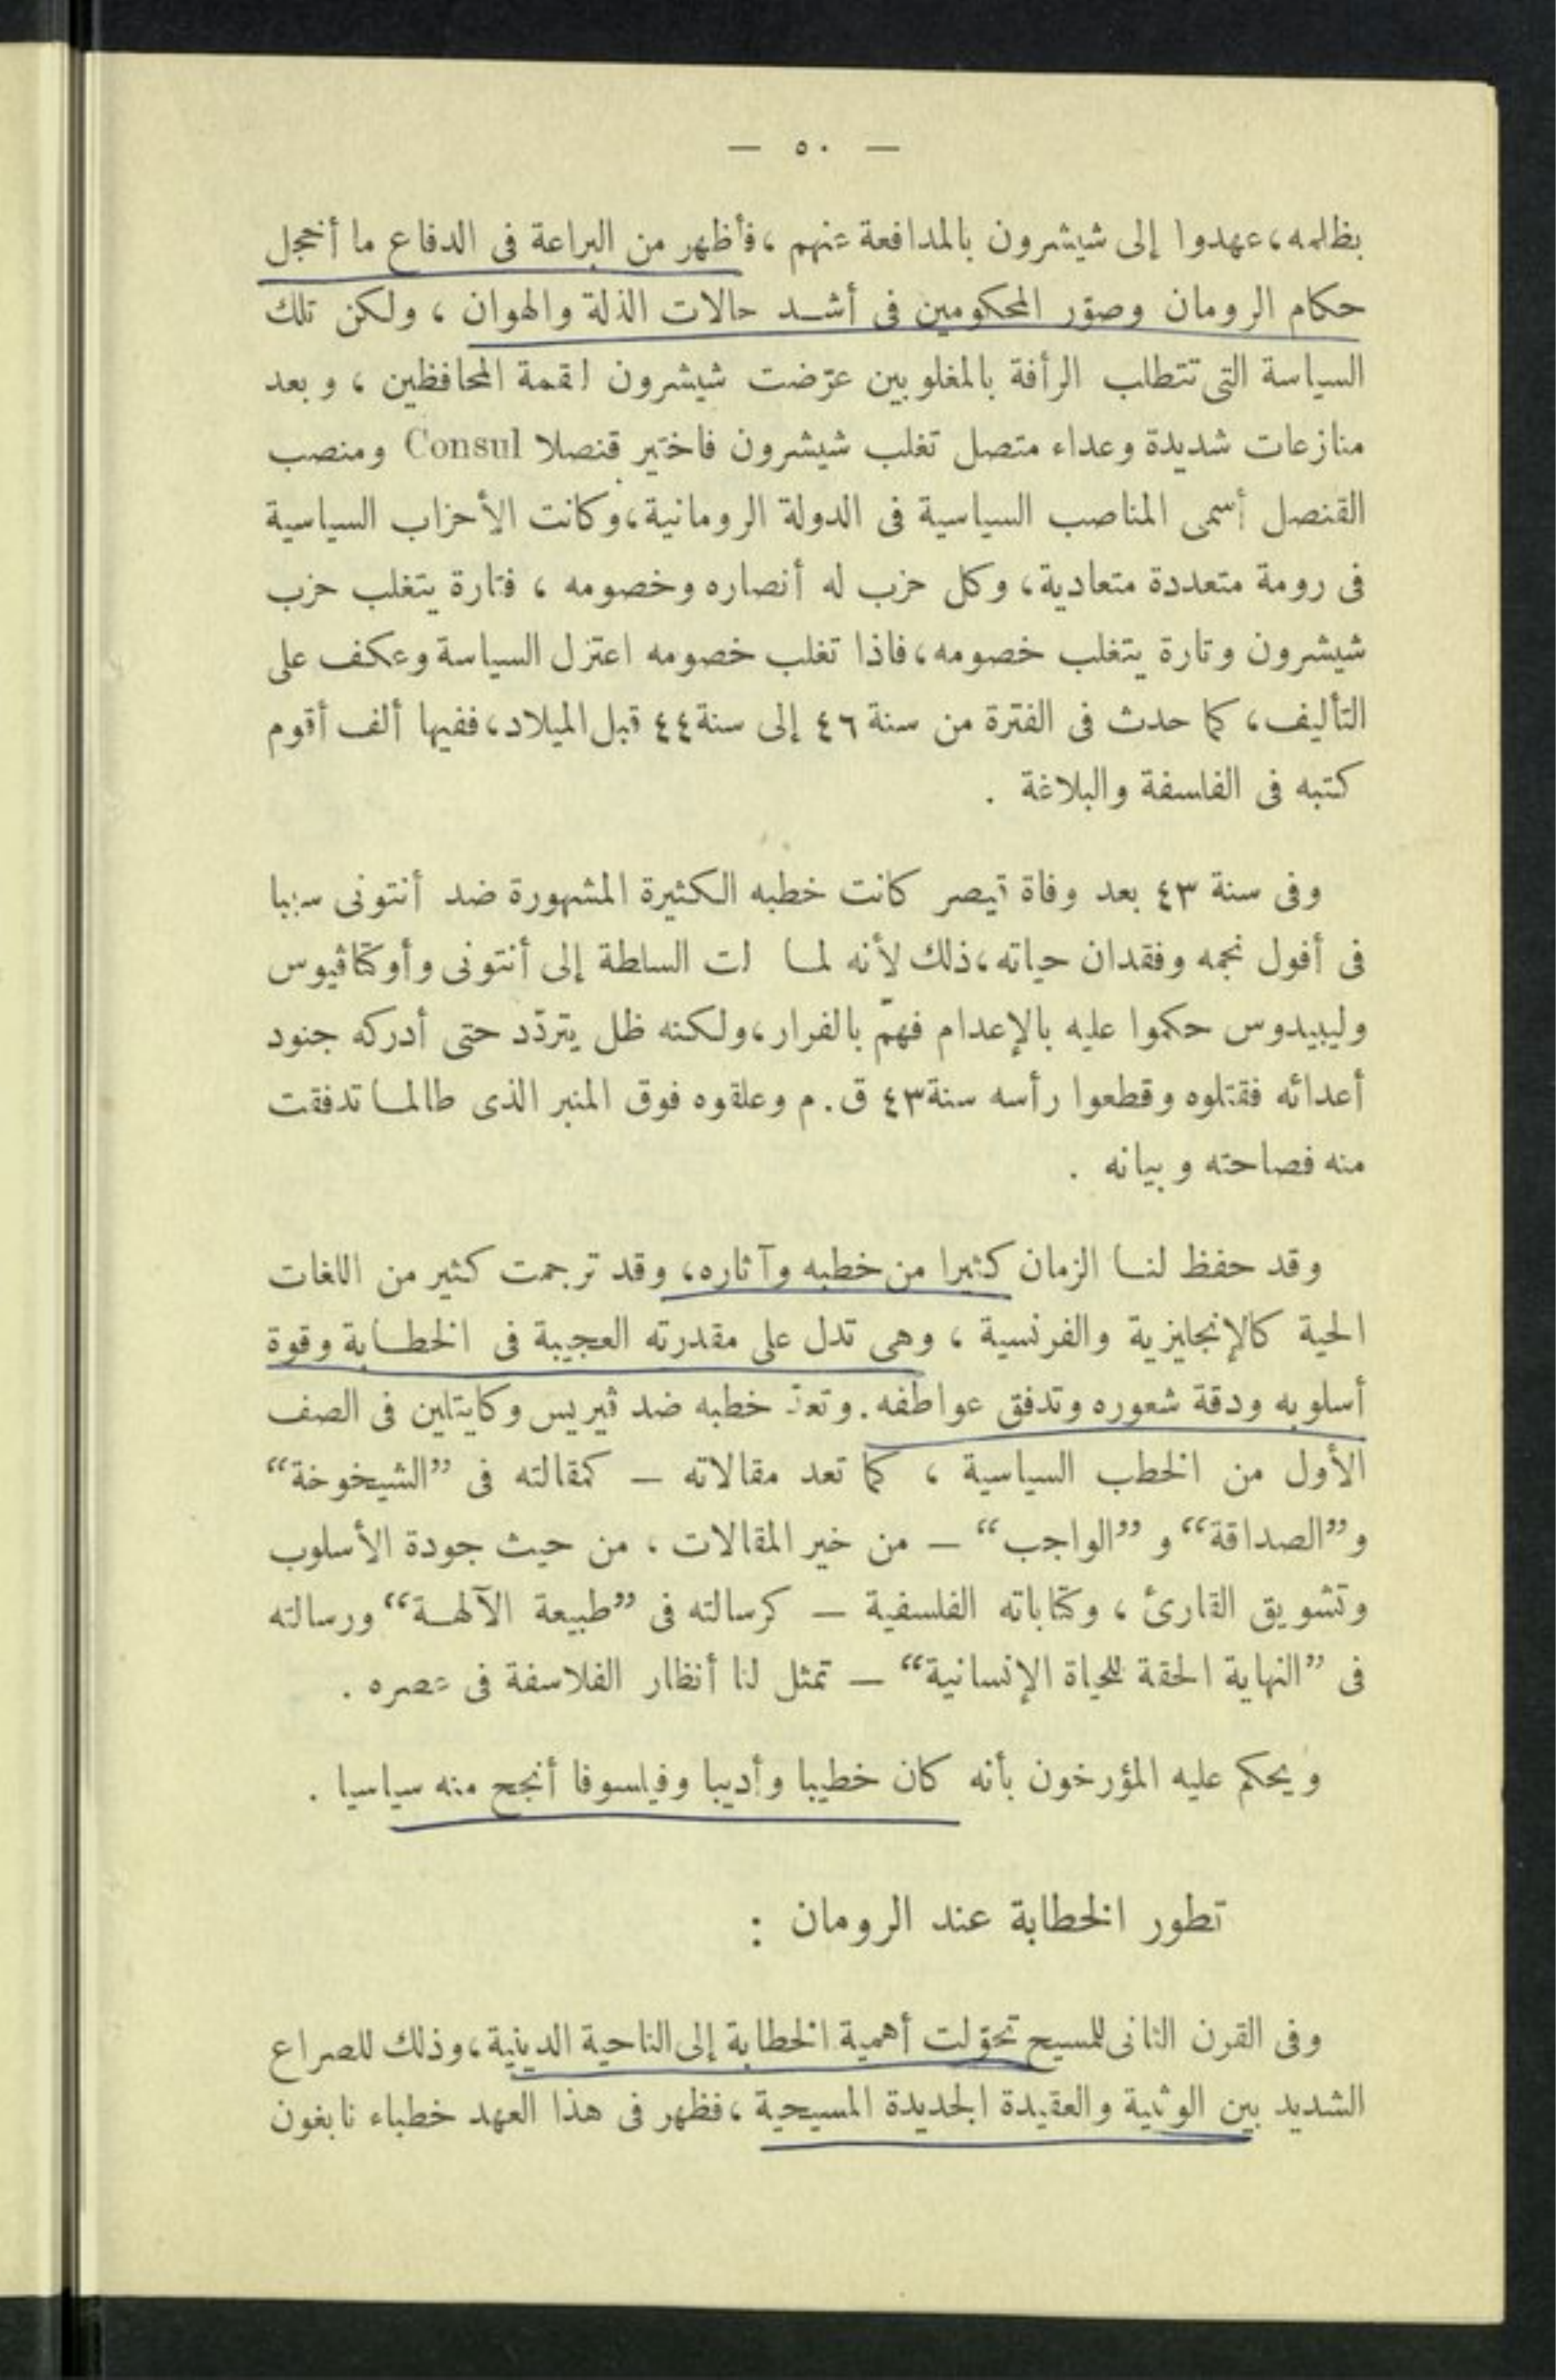 — ٥٠ —
بظلمه، عهدوا إلى شيشرون بالمدافعة عنهم ، فأظهر من البراعة فى الدفاع ما أخجل
حكام الرومان وصوّر المحكومين فى أشد حالات الذلة والهوان ، ولكن تلك
السياسة التى تتطلب الرأفة بالمغلوبين عرّضت شيشرون لقمة المحافظين ، وبعد
منازعات شديدة وعداء متصل تغلب شيشرون فاختير قنصلا Consul ومنصب
القنصل أسمى المناصب السياسية فى الدولة الرومانية، وكانت الأحزاب السياسية
فى رومة متعددة متعادية، وكل حزب له أنصاره وخصومه ، فتارة يتغلب حزب
شيشرون وتارة يتغلب خصومه، فاذا تغلب خصومه اعتزل السياسة وعكف على
التأليف، كما حدث فى الفترة من سنة ٤٦ إلى سنة ٤٤ قبل الميلاد، ففيها ألف أقوم
كتبه فى الفلسفة والبلاغة .
وفى سنة ٤٣ بعد وفاة قيصر كانت خطبه الكثيرة المشهورة ضد أنتونى سببا
فى أفول نجمه وفقدان حياته، ذلك لأنه لما لت السلطة إلى أنتونى وأوكتاڤيوس
وليبيدوس حكموا عليه بالإعدام فهمّ بالفرار، ولكنه ظل يتردّد حتى أدركه جنود
أعدائه فقتلوه وقطعوا رأسه سنة ٤٣ ق. م وعلقوه فوق المنبر الذى طالما تدفقت
منه فصاحته وبيانه .
وقد حفظ لنا الزمان كثيرا من خطبه وآثاره، وقد ترجمت كثير من اللغات
الحية كالإنجليزية والفرنسية ، وهى تدل على مقدرته العجيبة فى الخطابة وقوة
أسلوبه ودقة شعوره وتدفق عواطفه. وتعدّ خطبه ضد ڤيريس وكايتلين فى الصف
الأول من الخطب السياسية ، كما تعد مقالاته — كمقالته فى ”الشيخوخة“
و”الصداقة“ و ”الواجب“ — من خير المقالات ، من حيث جودة الأسلوب
وتشويق القارئ ، وكتاباته الفلسفية — كرسالته فى ”طبيعة الآلهة“ ورسالته
فى ”النهاية الحقة للحياة الإنسانية“ — تمثل لنا أنظار الفلاسفة فى عصره .
ويحكم عليه المؤرخون بأنه كان خطيبا وأديبا وفيلسوفا أنجح منه سياسيا .
تطور الخطابة عند الرومان :
وفى القرن الثانى للمسيح تحوّلت أهمية الخطابة إلى الناحية الدينية، وذلك للصراع
الشديد بين الوثنية والعقيدة الجديدة المسيحية ، فظهر فى هذا العهد خطباء نابغون